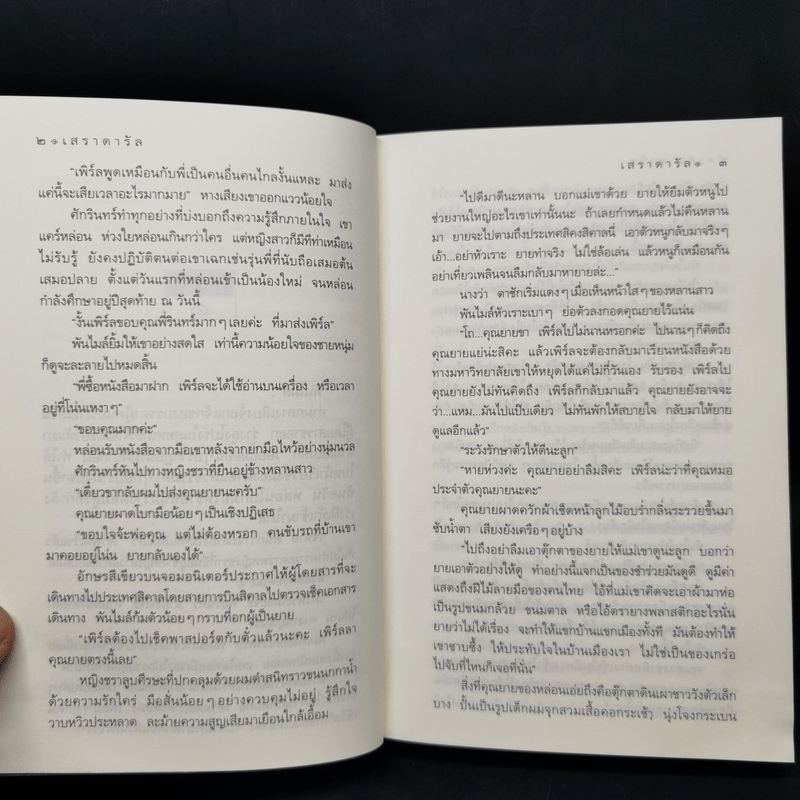 ๒ เสราดารัล
"เพิร์ลพูดเหมือนกับพี่เป็นคนอื่นคนไกลงั้นแหละ มาส่ง
แค่นี้จะเสียเวลาอะไรมากมาย" หางเสียงเขาออกแววน้อยใจ
ศักรินทร์ทำทุกอย่างที่บ่งบอกถึงความรู้สึกภายในใจ เขา
แคร์หล่อน ห่วงใยหล่อนเกินกว่าใคร แต่หญิงสาวก็มีทีท่าเหมือน
ไม่รับรู้ ยังคงปฏิบัติตนต่อเขาเฉกเช่นรุ่นพี่ที่นับถือเสมอต้น
เสมอปลาย ตั้งแต่วันแรกที่หล่อนเข้าเป็นน้องใหม่ จนหล่อน
กำลังศึกษาอยู่ปีสุดท้าย ณ วันนี้
"งั้นเพิร์ลขอบคุณพี่รินทร์มากๆ เลยค่ะ ที่มาส่งเพิร์ล"
พันไมล์ยิ้มให้เขาอย่างสดใส เท่านี้ความน้อยใจของชายหนุ่ม
ก็ดูจะละลายไปหมดสิ้น
"พี่ซื้อหนังสือมาฝาก เพิร์ลจะได้ใช้อ่านบนเครื่อง หรือเวลา
อยู่ที่โน่นเหงาๆ"
"ขอบคุณมากค่ะ"
หล่อนรับหนังสือจากมือเขาหลังจากยกมือไหว้อย่างนุ่มนวล
ศักรินทร์หันไปทางหญิงชราที่ยืนอยู่ข้างหลานสาว
"เดี๋ยวขากลับผมไปส่งคุณยายนะครับ"
คุณยายผาดโบกมือน้อยๆ เป็นเชิงปฏิเสธ
"ขอบใจจ้ะพ่อคุณ แต่ไม่ต้องหรอก คนขับรถที่บ้านเขา
มาคอยอยู่โน่น ยายกลับเองได้"
อักษรสีเขียวบนจอมอนิเตอร์ประกาศให้ผู้โดยสารที่จะ
เดินทางไปประเทศสิคาลโดยสายการบินสิคาลไปตรวจเช็คเอกสาร
เดินทาง พันไมล์ก้มตัวน้อยๆ กราบที่อกผู้เป็นยาย
"เพิร์ลต้องไปเช็คพาสปอร์ตกับตั๋วแล้วนะคะ เพิร์ลลา
คุณยายตรงนี้เลย"
หญิงชราลูบศีรษะที่ปกคลุมด้วยผมดำสนิทราวขนนกกาน้ำ
ด้วยความรักใคร่ มือสั่นน้อยๆ อย่างควบคุมไม่อยู่ รู้สึกใจ
วาบหวิวประหลาด ละม้ายความสูญเสียมาเยือนใกล้เอื้อม
เสราดารัล ๓
"ไปดีมาดีนะหลาน บอกแม่เขาด้วย ยายให้ยืมตัวหนูไป
ช่วยงานใหญ่อะไรเขาเท่านั้นนะ ถ้าเลยกำหนดแล้วไม่คืนหลาน
มา ยายจะไปตามถึงประเทศคิงสิคาลนี่ เอาตัวหนูกลับมาจริงๆ
เอ้า...อย่าหัวเราะ ยายทำจริง ไม่ใช่ล้อเล่น แล้วหนูก็เหมือนกัน
อย่าเที่ยวเพลินจนลืมกลับมาหายายล่ะ..."
นางว่า ตาชักเริ่มแดงๆ เมื่อเห็นหน้าใสๆ ของหลานสาว
พันไมล์หัวเราะเบาๆ ย่อตัวลงกอดคุณยายไว้แน่น
"โถ...คุณยายขา เพิร์ลไปไม่นานหรอกค่ะ ไปนานๆ ก็คิดถึง
คุณยายแย่น่ะสิคะ แล้วเพิร์ลจะต้องกลับมาเรียนหนังสือด้วย
ทางมหาวิทยาลัยเขาให้หยุดได้แค่ไม่กี่วันเอง รับรอง เพิร์ลไป
คุณยายยังไม่ทันคิดถึง เพิร์ลก็กลับมาแล้ว คุณยายยังอาจจะ
ว่า...แหม...มันไปแป๊บเดียว ไม่ทันพักให้สบายใจ กลับมาให้ยาย
ดูแลอีกแล้ว"
"ระวังรักษาตัวให้ดีนะลูก"
"หายห่วงค่ะ คุณยายอย่าลืมสิคะ เพิร์ลน่ะว่าที่คุณหมอ
ประจำตัวคุณยายนะคะ"
คุณยายผาดควักผ้าเช็ดหน้าลูกไม้อบร่ำกลิ่นระรวยขึ้นมา
ซับน้ำตา เสียงยังเครือๆ อยู่บ้าง
"ไปถึงอย่าลืมเอาตุ๊กตาของยายให้แม่เขาดูนะลูก บอกว่า
ยายเอาตัวอย่างให้ดู ทำอย่างนี้แจกเป็นของชำร่วยมันดูดี ดูมีค่า
แสดงถึงฝีไม้ลายมือของคนไทย ไอ้ที่แม่เขาคิดจะเอาผ้ามาห่อ
เป็นรูปขนมกล้วย ขนมตาล หรือไอ้ตรายางพลาสติกอะไรนั่น
ยายว่าไม่ได้เรื่อง จะทำให้แขกบ้านแขกเมืองทั้งที มันต้องทำให้
เขาซาบซึ้ง ให้ประทับใจในบ้านเมืองเรา ไม่ใช่เป็นของเกร่อ
ไปจับที่ไหนก็เจอที่นั่น"
สิ่งที่คุณยายของหล่อนเอ่ยถึงคือตุ๊กตาดินเผาชาววังตัวเล็ก
บาง ปั้นเป็นรูปเด็กผมจุกสวมเสื้อคอกระเช้า นุ่งโจงกระเบน